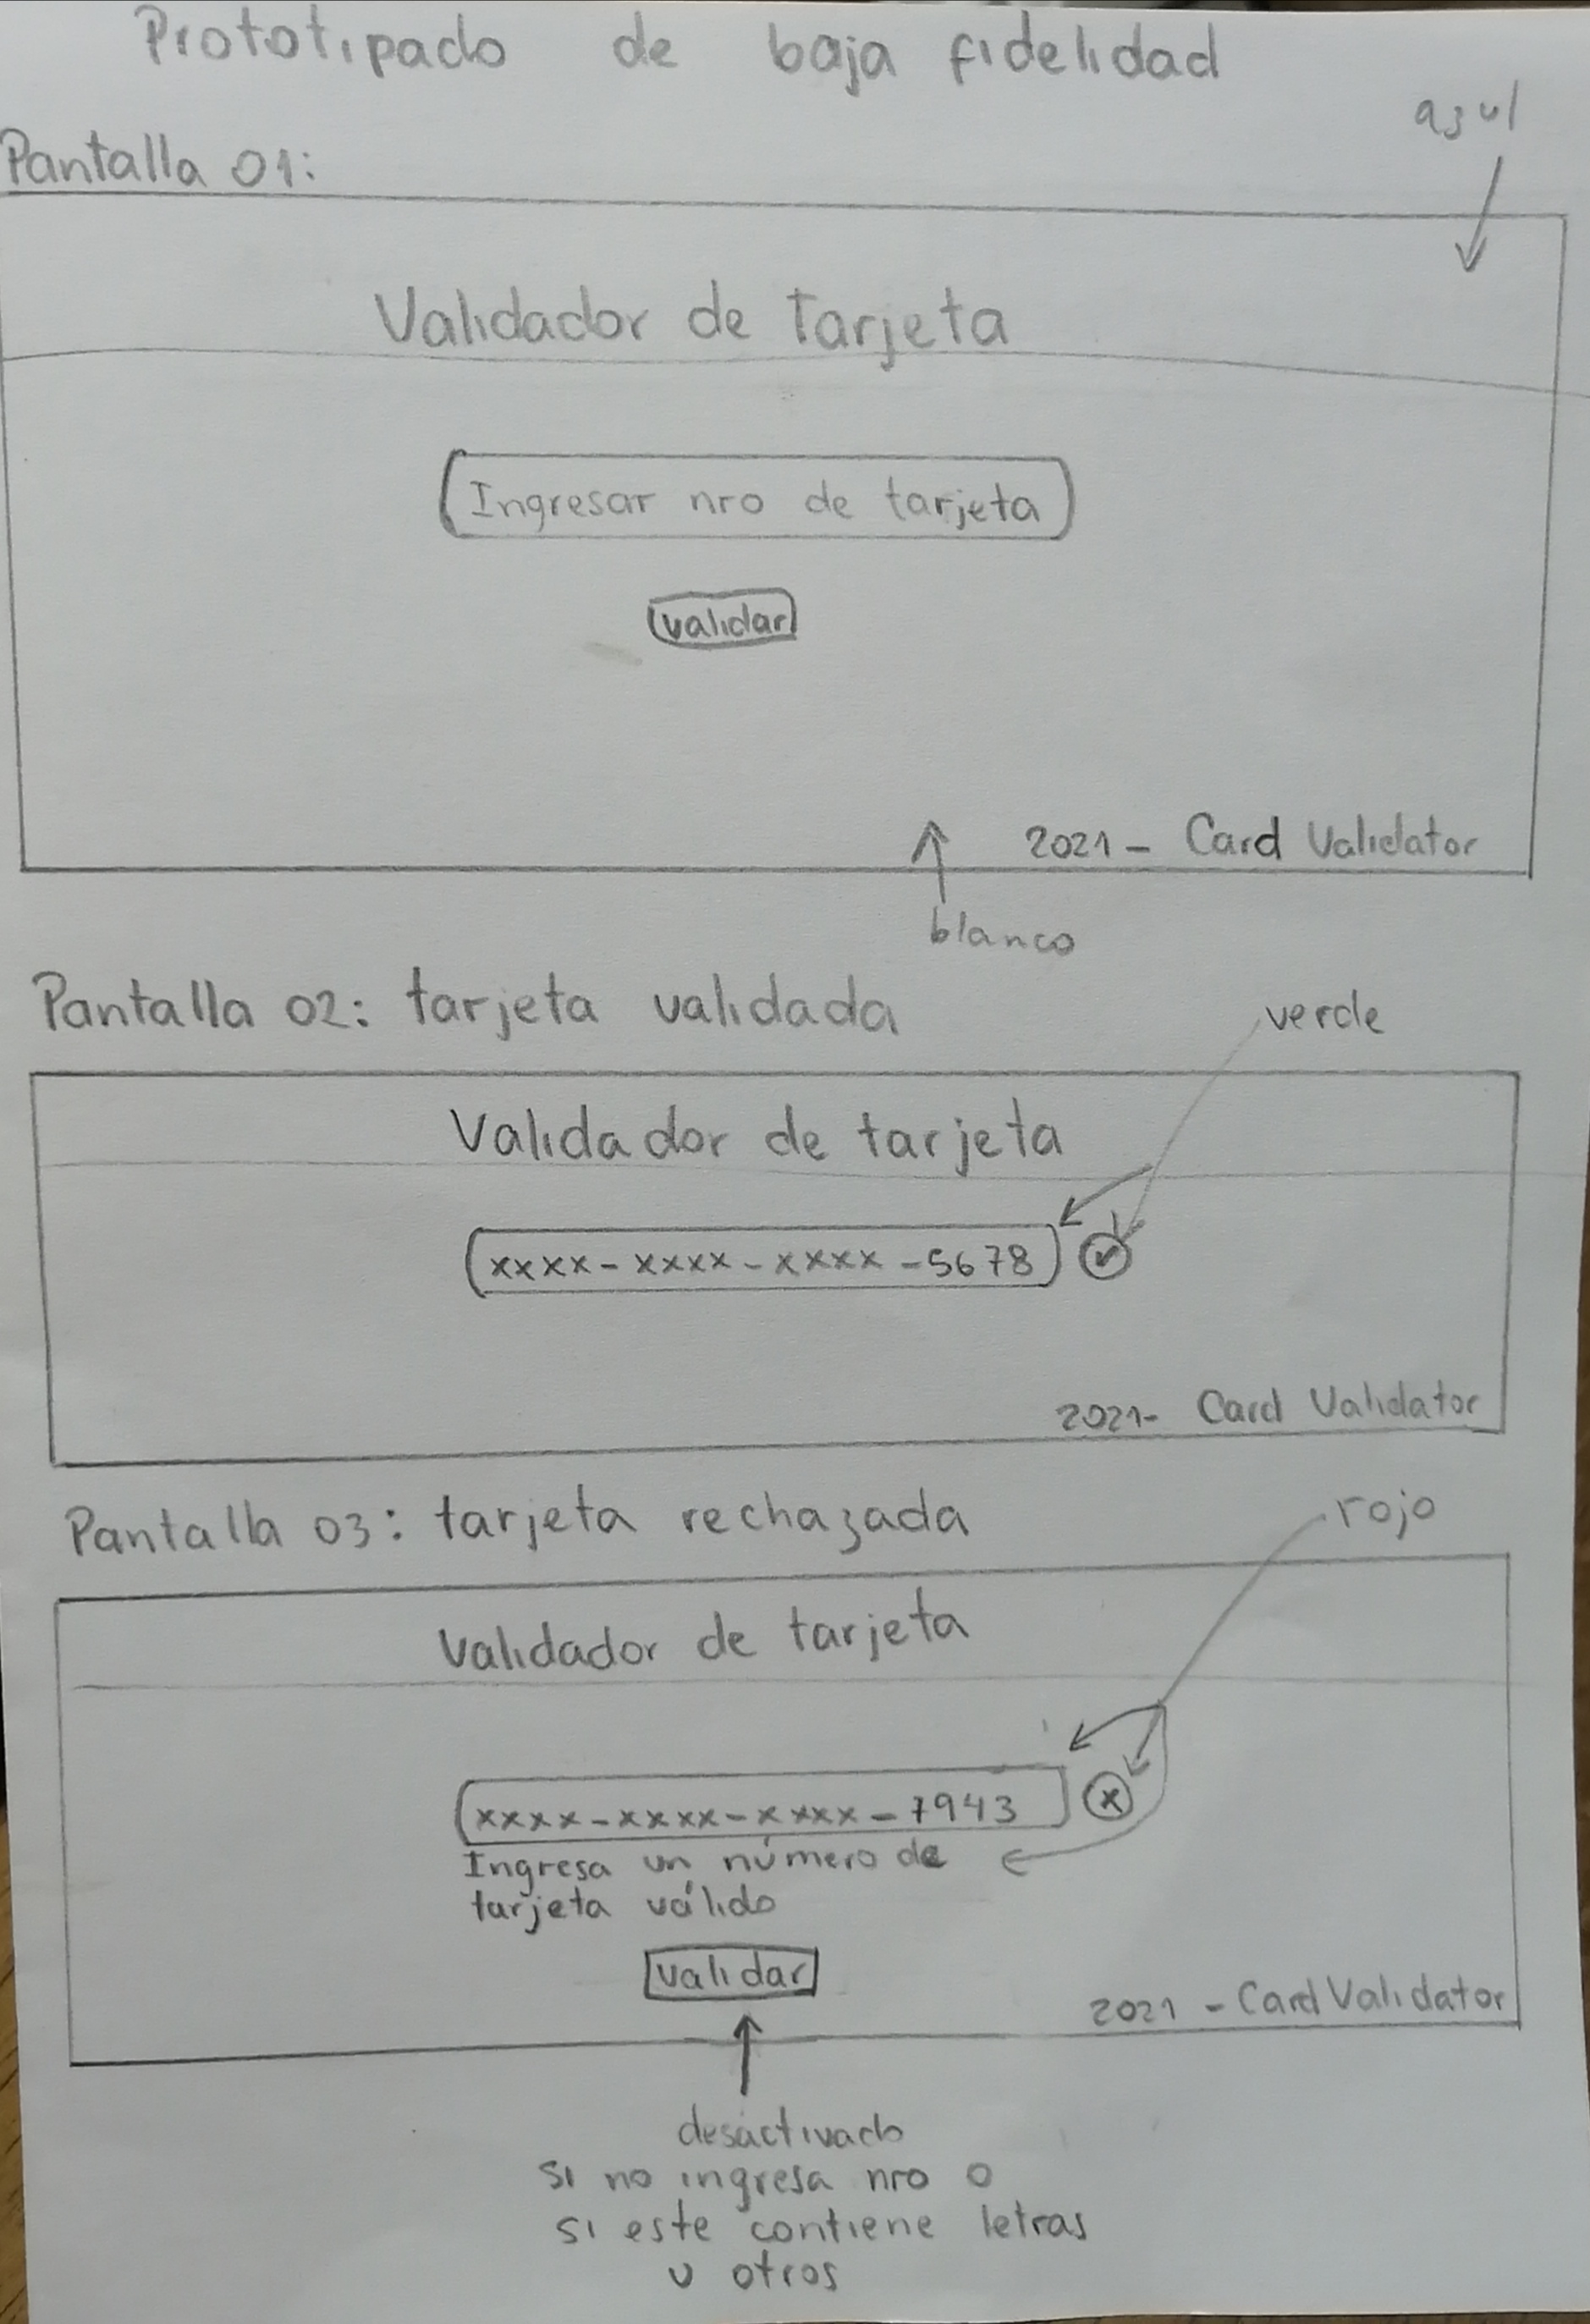 Prototipado de baja fidelidad
azul
Pantalla 01:
Validador de Tarjeta
Ingresar nro de tarjeta
validar
2021 - Card Validator
blanco
Pantalla 02: tarjeta validada
verde
Validador de tarjeta
xxxx - xxxx - xxxx - 5678
2021- Card Validator
Pantalla 03: tarjeta rechazada
rojo
Validador de tarjeta
xxxx-xxxx-xxxx-7943
x
Ingresa un número de
tarjeta válido
validar
2021 - Card Validator
desactivado
si no ingresa nro o
si este contiene letras
u otros